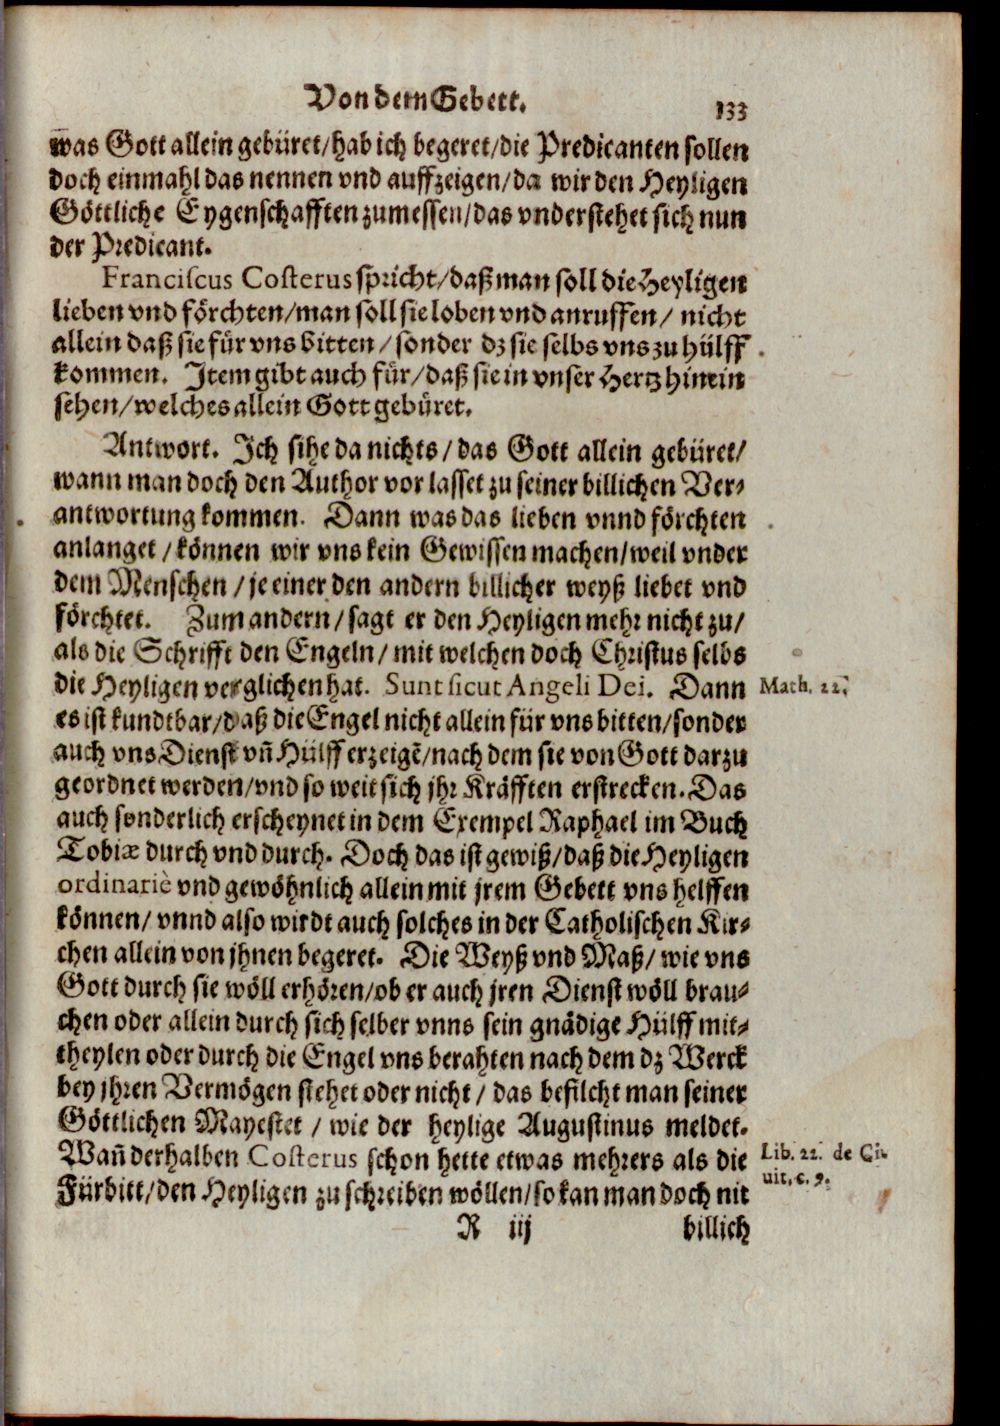 Von dem Gebett.
133
was Gott allein gebüret/hab ich begeret/die Predicanten sollen
doch einmahl das nennen vnd auffzeigen/da wir den Heyligen
Göttliche Eygenschafften zumessen/das vnderstehet sich nun
der Predicant.
Franciscus Costerus spricht/daß man soll die Heyligen
lieben vnd förchten/man soll sie loben vnd anruffen/ nicht
allein daß sie für vns bitten/sonder dz sie selbs vns zu hülff
kommen. Item gibt auch für/daß sie in vnser Hertz hinein
sehen/welches allein Gott gebüret.
Antwort. Ich sihe da nichts/das Gott allein gebüret/
wann man doch den Author vor lasset zu seiner billichen Ver⸗
antwortung kommen. Dann was das lieben vnnd förchten
anlanget/können wir vns kein Gewissen machen/weil vnder
dem Menschen/je einer den andern billicher weyß liebet vnd
förchtet. Zum andern/sagt er den Heyligen mehr nicht zu/
als die Schrifft den Engeln/mit welchen doch Christus selbs
die Heyligen verglichen hat. Sunt sicut Angeli Dei. Dann
Math. 22.
es ist kundtbar/daß die Engel nicht allein für vns bitten/sonder
auch vns Dienst vñ Hülff erzeigẽ/nach dem sie von Gott darzu
geordnet werden/vnd so weit sich jhr Kräfften erstrecken. Das
auch sonderlich erscheynet in dem Exempel Raphael im Buch
Tobiæ durch vnd durch. Doch das ist gewiß/daß die Heyligen
ordinariè vnd gewöhnlich allein mit jrem Gebett vns helffen
können/ vnnd also wirdt auch solches in der Catholischen Kir⸗
chen allein von jhnen begeret. Die Weyß vnd Maß/ wie vns
Gott durch sie wöll erhören/ob er auch jren Dienst wöll brau⸗
chen oder allein durch sich selber vnns sein gnädige Hülff mit⸗
theylen oder durch die Engel vns berahten nach dem dz Werck
bey jhren Vermögen stehet oder nicht/ das befilcht man seiner
Göttlichen Mayestet/ wie der heylige Augustinus meldet.
Wañ derhalben Costerus schon hette etwas mehrers als die
Lib. 22. de Ci⸗
Fürbitt/den Heyligen zu schreiben wöllen/so kan man doch nit
uit. c. 9.
R iij
billich